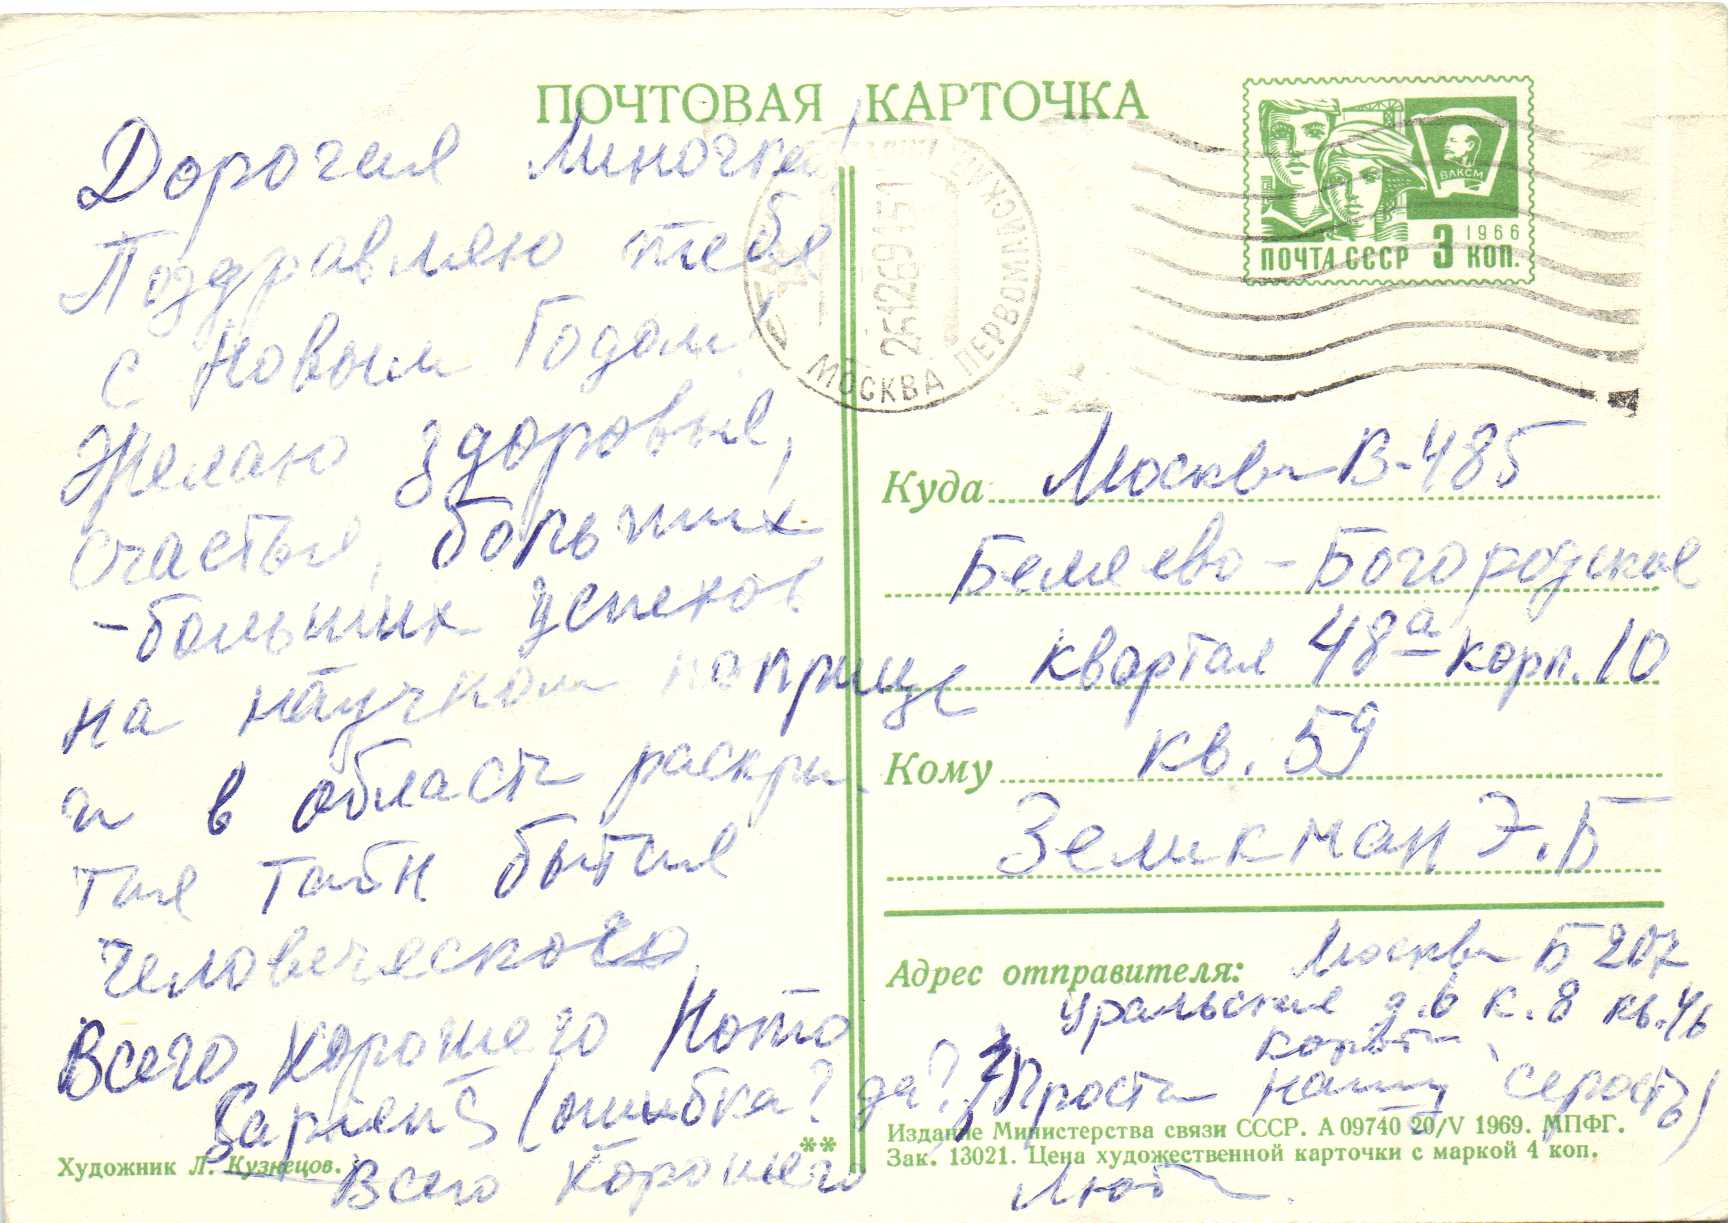 ПОЧТОВАЯ КАРТОЧКА
Дорогая Линочка!
Поздравляю тебя
с Новым Годом!
Желаю здоровья,
счастья, больших
-больших успехов
на научном поприще
и в области раскры
тия тайн бытия
человеческого
Всего хорошего Homo
Sapiens (ошибка? да?
Прости нашу серость)
Всего хорошего Люба.
МОСКВА ПЕРВОМАЙСКИЙ
25126915
ВЛКСМ
1966
ПОЧТА СССР 3 КОП.
Куда Москва В-485
Беляево-Богородское
квартал 48а корп. 10
кв. 59
Кому
Зеликман Э.Б
Адрес отправителя: Москва Б 207
Уральская д.6 к.8 кв.46
Издание Министерства связи СССР. А 09740 20/V 1969. МПФГ.
Зак. 13021. Цена художественной карточки с маркой 4 коп.
Художник Л. Кузнецов.
**